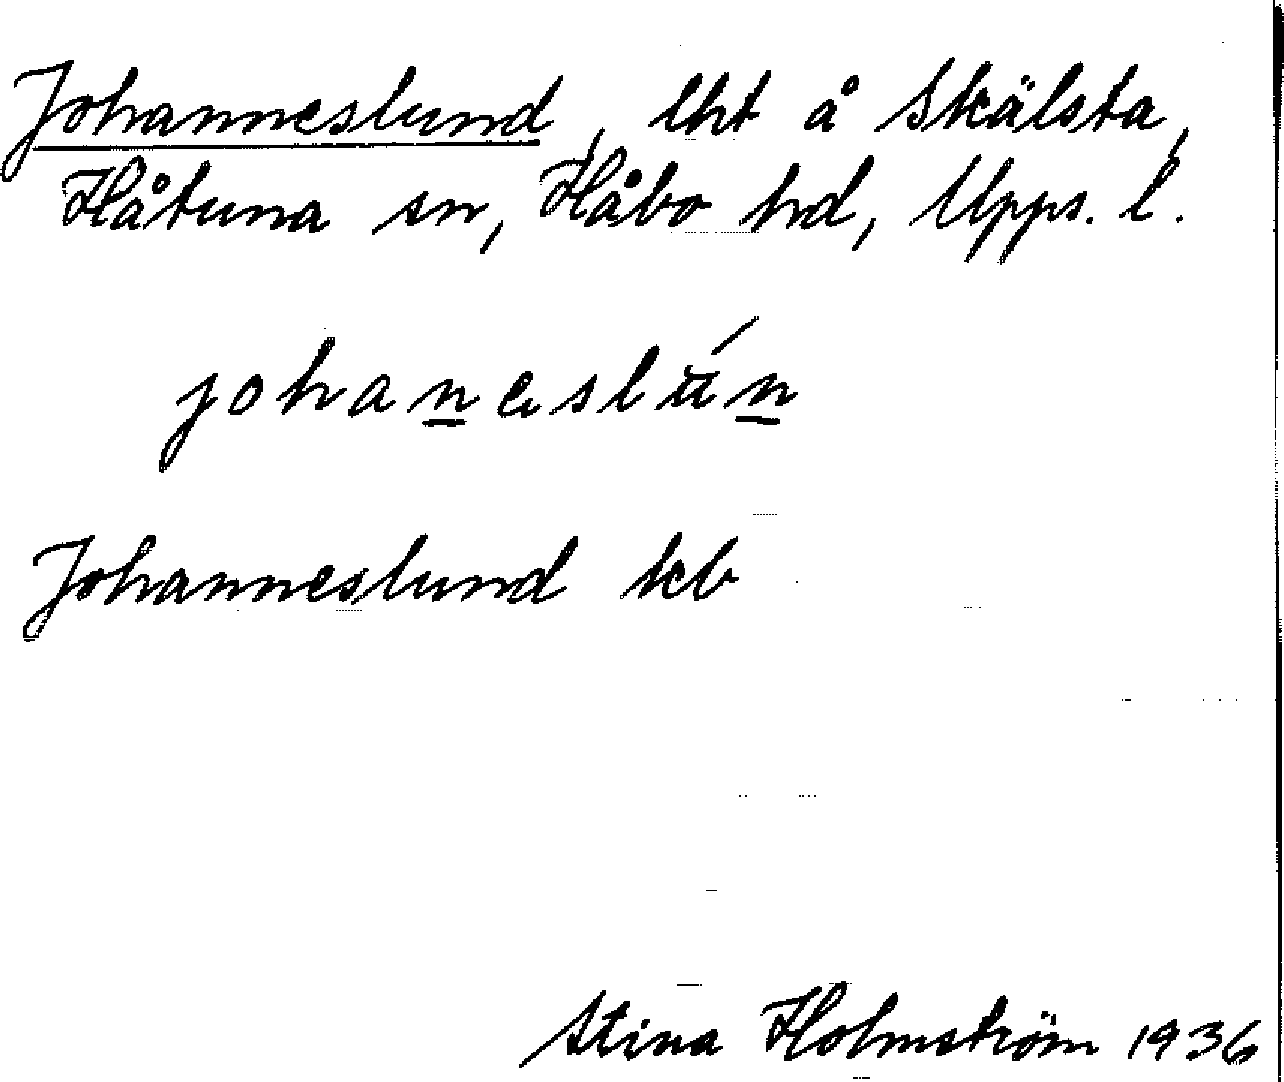 Johanneslund, lht å Skälsta,
Håtuna sn, Håbo hd, Upps. l.
johaṉeslú̄ṉ
Johanneslund kb
Stina Holmström 1936